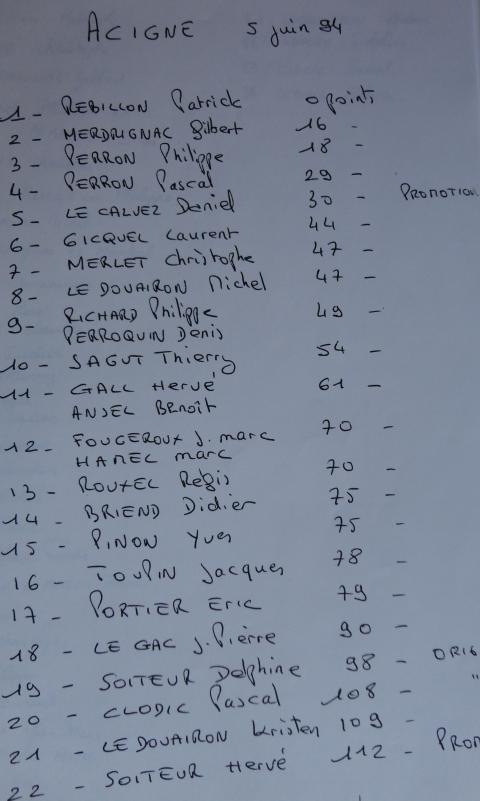 ACIGNE 5 juin 94
1 - REBILLON Patrick 0 points
2 - MERDRIGNAC Gilbert 16 -
3 - PERRON Philippe 18 -
4 - PERRON Pascal 29 -
5 - LE CALVEZ Daniel 30 - PROMOTION
6 - GICQUEL Laurent 44 -
7 - MERLET Christophe 47 -
8 - LE DOUAIRON Michel 47 -
9 - RICHARD Philippe 49 -
PERROQUIN Denis
10 - SAGUT Thierry 54 -
11 - GALL Hervé 61 -
ANSEL Benoît
12 - FOUGEROUX J. marc 70 -
HAMEL marc
13 - ROUXEL Régis 70 -
14 - BRIEND Didier 75 -
15 - PINON Yves 75 -
16 - TOUPIN Jacques 78 -
17 - PORTIER Eric 79 -
18 - LE GAC J. Pierre 90 -
19 - SOITEUR Delphine 98 - ORIG
20 - CLODIC Pascal 108 - "
21 - LE DOUAIRON Kristen 109 -
22 - SOITEUR Hervé 112 - PROM